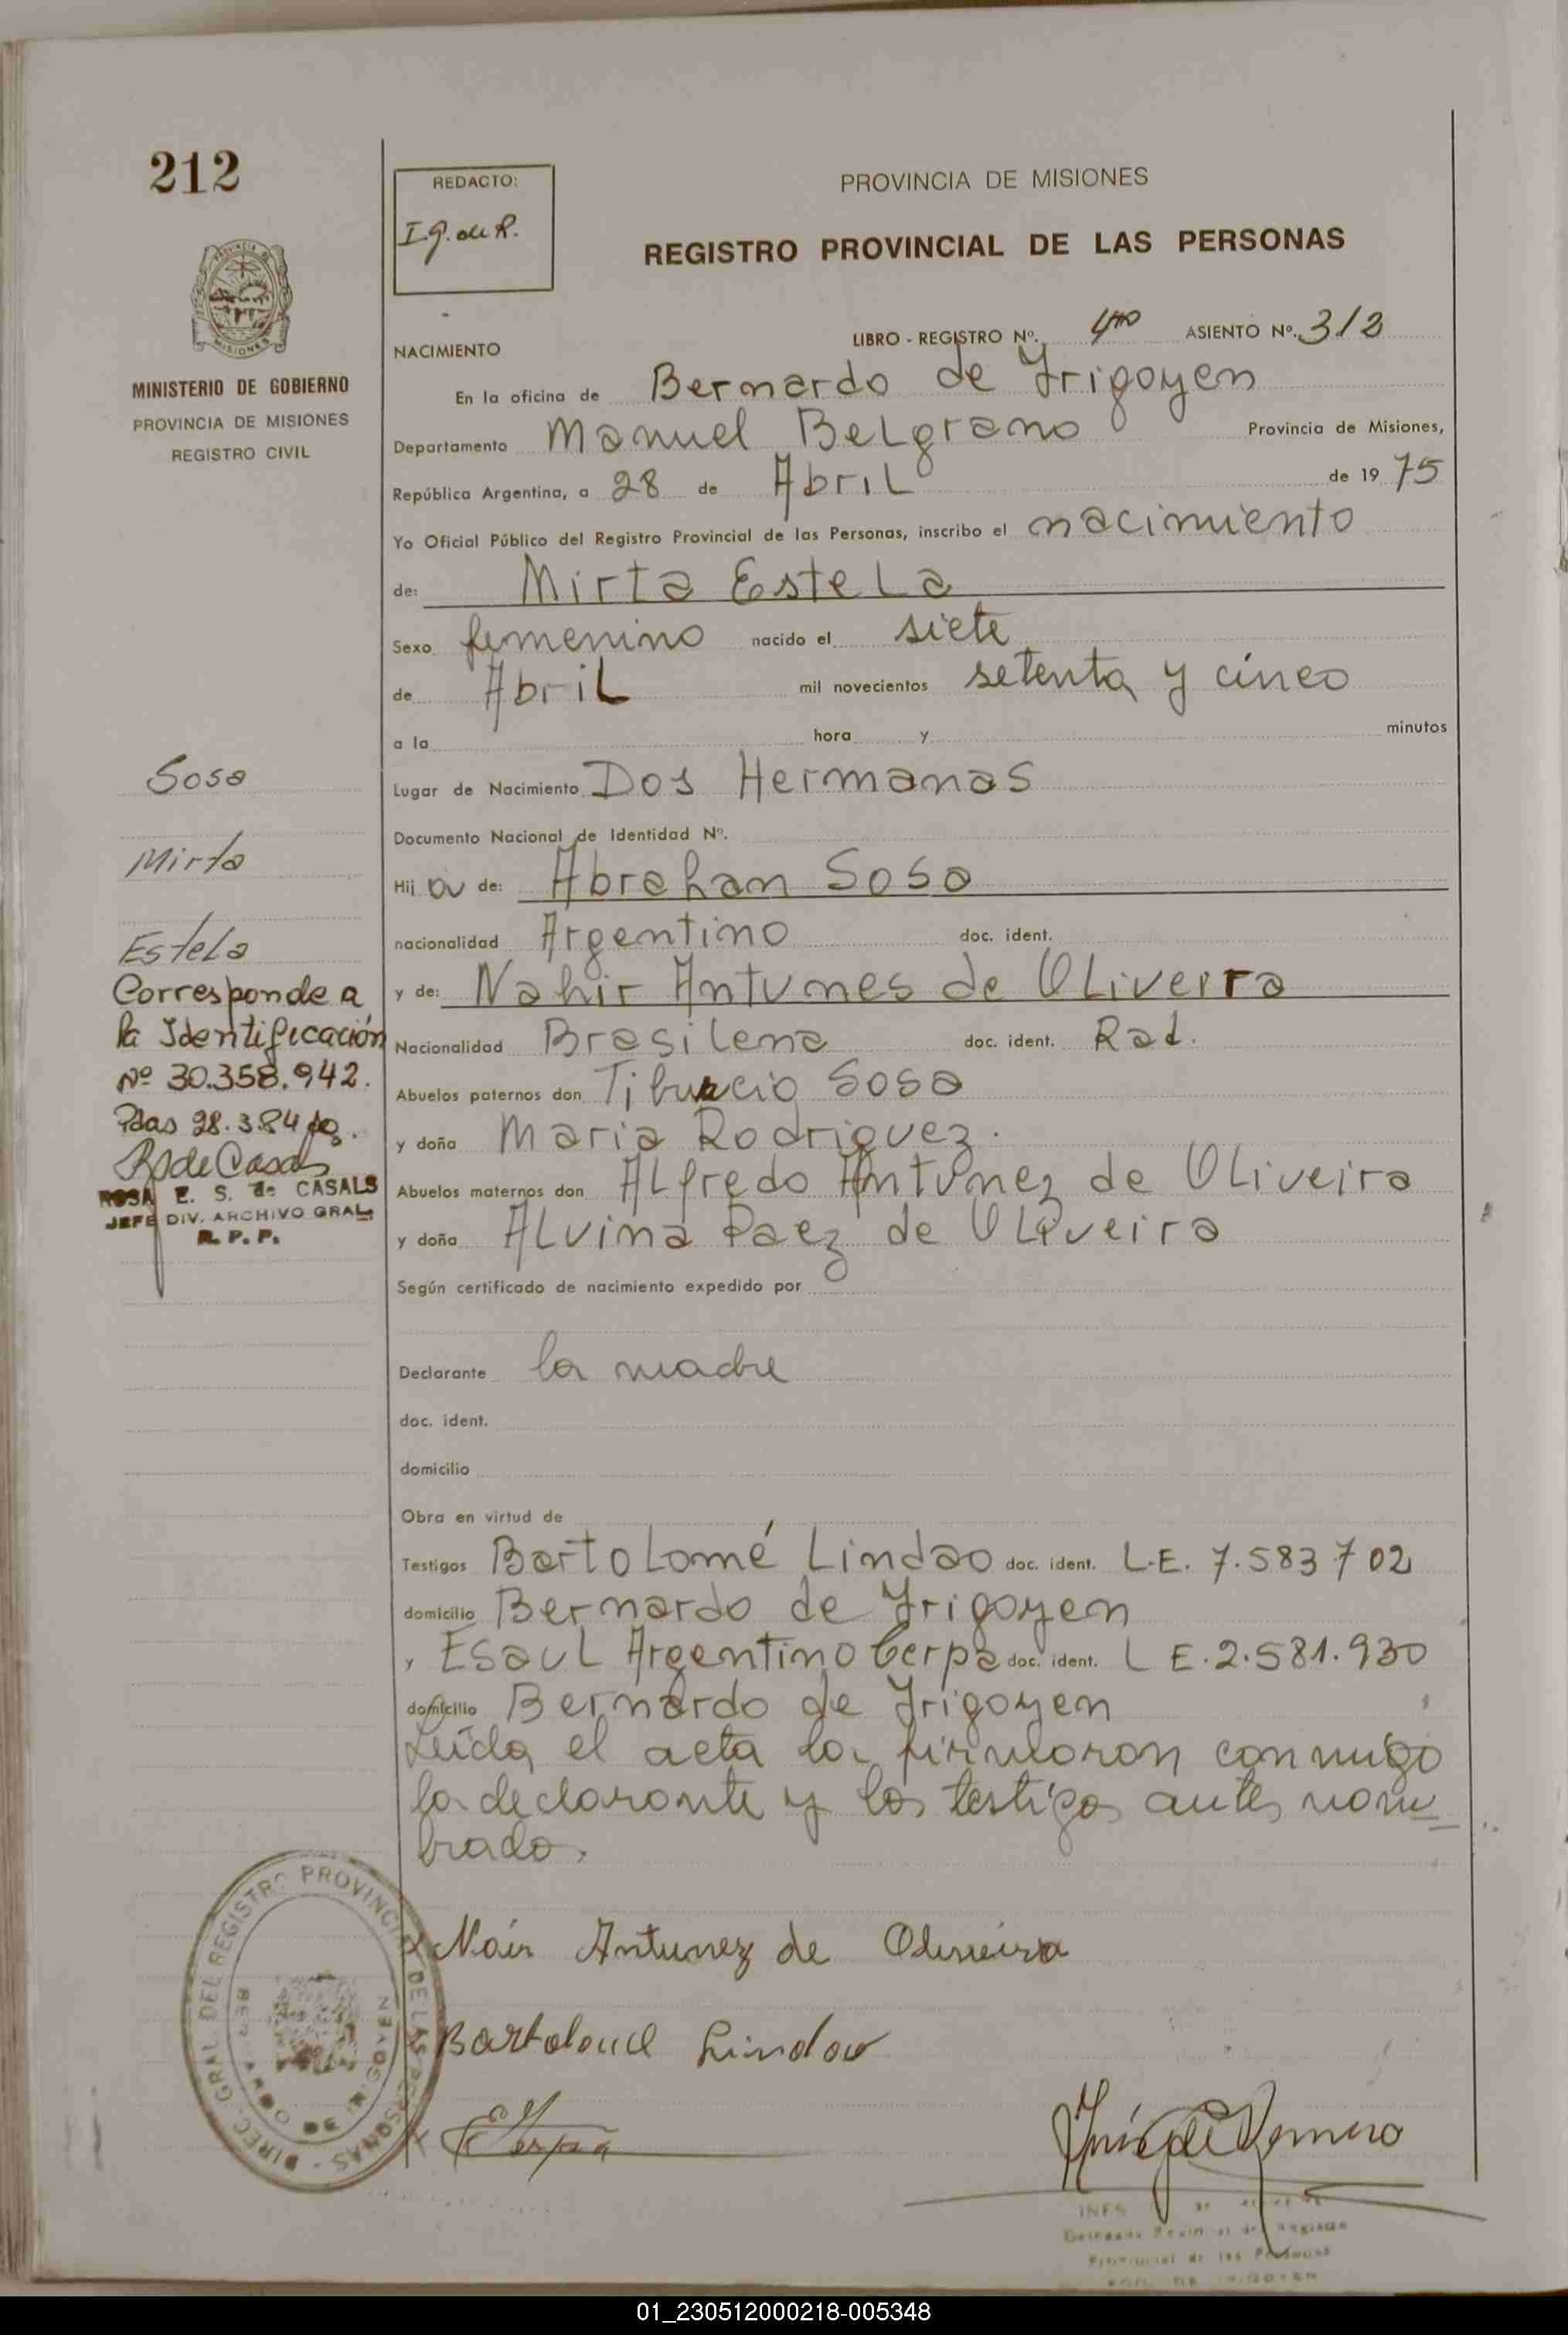 212
REDACTO:
I.g. de R.
PROVINCIA DE MISIONES
REGISTRO PROVINCIAL DE LAS PERSONAS
MINISTERIO DE GOBIERNO
PROVINCIA DE MISIONES
REGISTRO CIVIL
NACIMIENTO
LIBRO - REGISTRO Nº. 4to ASIENTO Nº. 312
En la oficina de Bernardo de Yrigoyen
Departamento Manuel Belgrano Provincia de Misiones,
República Argentina, a 28 de Abril de 1975
Yo Oficial Público del Registro Provincial de las Personas, inscribo el nacimiento
de: Mirta Estela
Sexo femenino nacido el siete
de Abril mil novecientos setenta y cinco
a la hora y minutos
Lugar de Nacimiento Dos Hermanas
Documento Nacional de Identidad Nº.
Hija de: Abrahan Sosa
nacionalidad Argentino doc. ident.
y de: Nahir Antunes de Oliveira
Nacionalidad Brasilena doc. ident. Rad.
Abuelos paternos don Tiburcio Sosa
y doña Maria Rodriguez.
Abuelos maternos don Alfredo Antunez de Oliveira
y doña Alvina Paez de Oliveira
Según certificado de nacimiento expedido por
Declarante la madre
doc. ident.
domicilio
Obra en virtud de
Testigos Bartolomé Lindao doc. ident. L.E. 7.583702
domicilio Bernardo de Yrigoyen
y Esaul Argentino Cerpa doc. ident. L E. 2.581.930
domicilio Bernardo de Yrigoyen
Leida el acta la firmaron conmigo
la declarante y los testigos antes nom
brado.
Sosa
Mirta
Estela
Corresponde a
la Identificación
Nº 30.358.942.
Pdas 28.384
ROSA E. S. de CASALS
JEFE DIV. ARCHIVO GRAL.
R. P. P.
Nair Antunez de Oliveira
Bartolome Lindao
E Cerpa
DIREC. GRAL DEL REGISTRO PROVINCIAL DE LAS PERSONAS
INES
Provincial de las Personas
01_230512000218-005348